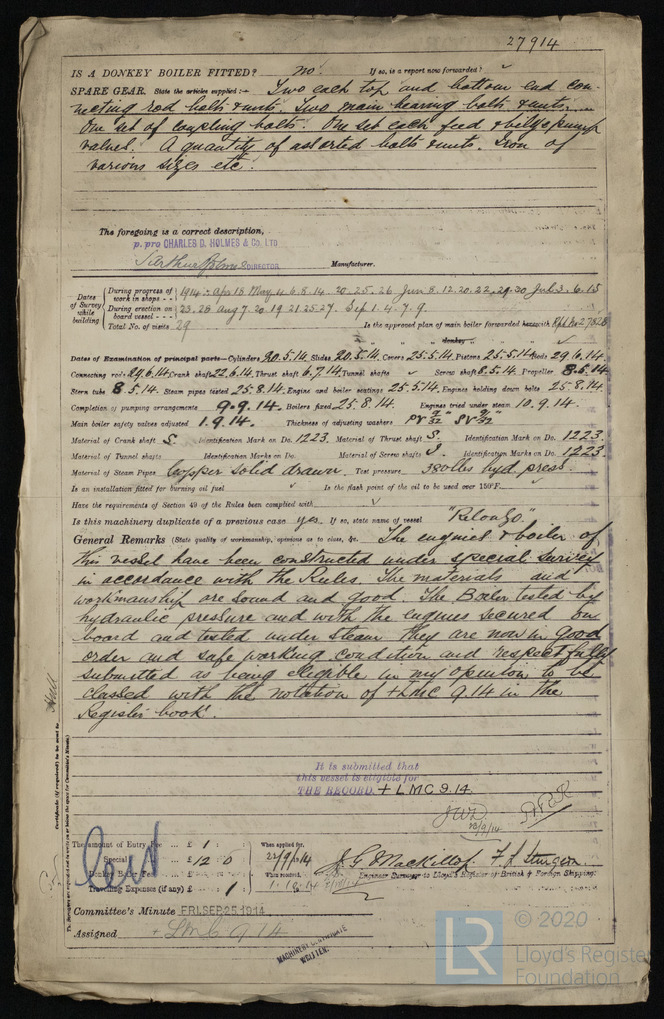 27914
IS A DONKEY BOILER FITTED? no. If so, is a report now forwarded?
SPARE GEAR. State the articles supplied:— Two each top and bottom end con-
necting rod bolts & nuts. Two main bearing bolts & nuts.
One set of coupling bolts. One set each feed & bilge pump
valves. A quantity of assorted bolts & nuts. Iron of
various sizes etc.
The foregoing is a correct description,
p. pro CHARLES D. HOLMES & Co. LTD
DIRECTOR Manufacturer.
Dates of Survey while building
During progress of work in shops - - 1914:- Apr 18. May 4. 6. 8. 14. 20. 25. 26 Jun 8. 12. 20. 22. 29. 30 Jul 3. 6. 15
During erection on board vessel - - - 23. 28 Aug 7. 20 19 21 25. 27. Sep 1. 4. 7. 9.
Total No. of visits 29 Is the approved plan of main boiler forwarded herewith
" " " donkey " " "
Dates of Examination of principal parts—Cylinders 20.5.14. Slides 20.5.14. Covers 25.5.14. Pistons 25.5.14 Rods 29.6.14.
Connecting rods 29.6.14. Crank shaft 22.6.14. Thrust shaft 6.7.14 Tunnel shafts ✓ Screw shaft 8.5.14. Propeller 8.5.14
Stern tube 8.5.14. Steam pipes tested 25.8.14. Engine and boiler seatings 25.5.14. Engines holding down bolts 25.8.14.
Completion of pumping arrangements 9.9.14. Boilers fixed 25.8.14. Engines tried under steam 10.9.14.
Main boiler safety valves adjusted 1.9.14. Thickness of adjusting washers PV 9/32 SV 9/32
Material of Crank shaft S. Identification Mark on Do. 1223. Material of Thrust shaft S. Identification Mark on Do. 1223.
Material of Tunnel shafts Identification Marks on Do. Material of Screw shafts S. Identification Marks on Do. 1223.
Material of Steam Pipes Copper solid drawn. Test pressure 380 lbs hyd press.
Is an installation fitted for burning oil fuel ✓ Is the flash point of the oil to be used over 150°F. ✓
Have the requirements of Section 49 of the Rules been complied with ✓
Is this machinery duplicate of a previous case yes. If so, state name of vessel
General Remarks (State quality of workmanship, opinions as to class, &c. The engines & boiler of
this vessel have been constructed under special survey
in accordance with the Rules. The materials and
workmanship are sound and good. The Boiler tested by
hydraulic pressure and with the engines secured on
board and tested under steam they are now in good
order and safe working condition and respectfully
submitted as being eligible in my opinion to be
classed with the notation of +LMC 9.14 in the
Register book.
Certificate (if required) to be sent to Hull
(The Surveyors are requested not to write on or below the space for Committee's Minute.)
It is submitted that
this vessel is eligible for
THE RECORD. + LMC 9.14.
The amount of Entry Fee .. £ 1 : : When applied for,
Special .. £ 12 : 0 : 22/9/1914
Donkey Boiler Fee .. £ : : When received,
Travelling Expenses (if any) £ : 1
J. G. Mackillop. F. J. Sturgeon.
Engineer Surveyor to Lloyd's Register of British & Foreign Shipping.
Committee's Minute FRI. SEP. 25. 1914
Assigned + LMC 9.14
MACHINERY CERTIFICATE
WRITTEN.
LR © 2020
Lloyd's Register
Foundation